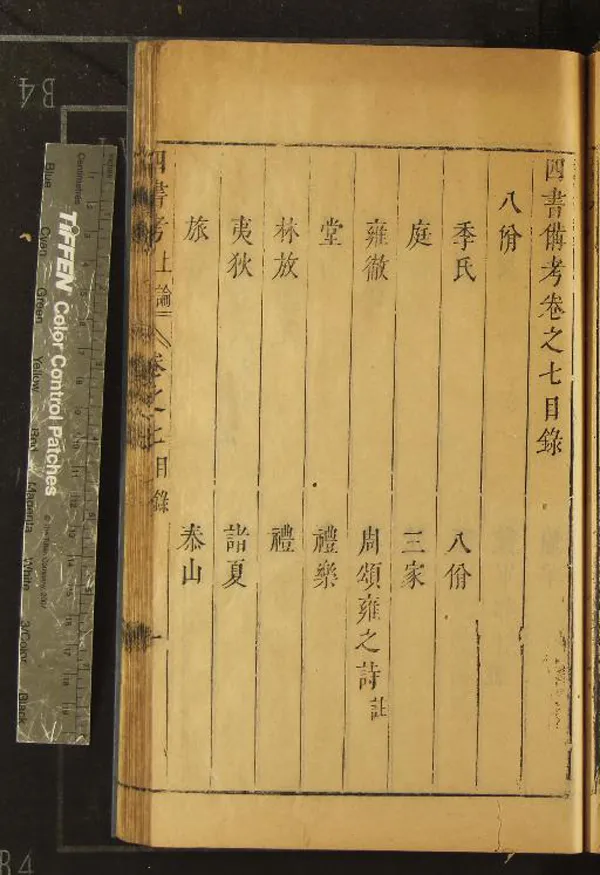 四書備考卷之七目錄
八佾
季氏
八佾
庭
三家
雍徹
周頌雍之詩註
堂
禮樂
林放
禮
夷狄
諸夏
旅
泰山
四書考上論
卷之七目錄
一
TIFFEN Color Control Patches
Centimetres
Blue
Cyan
Green
Yellow
Red
Magenta
White
3/Color
Black
B4
B4